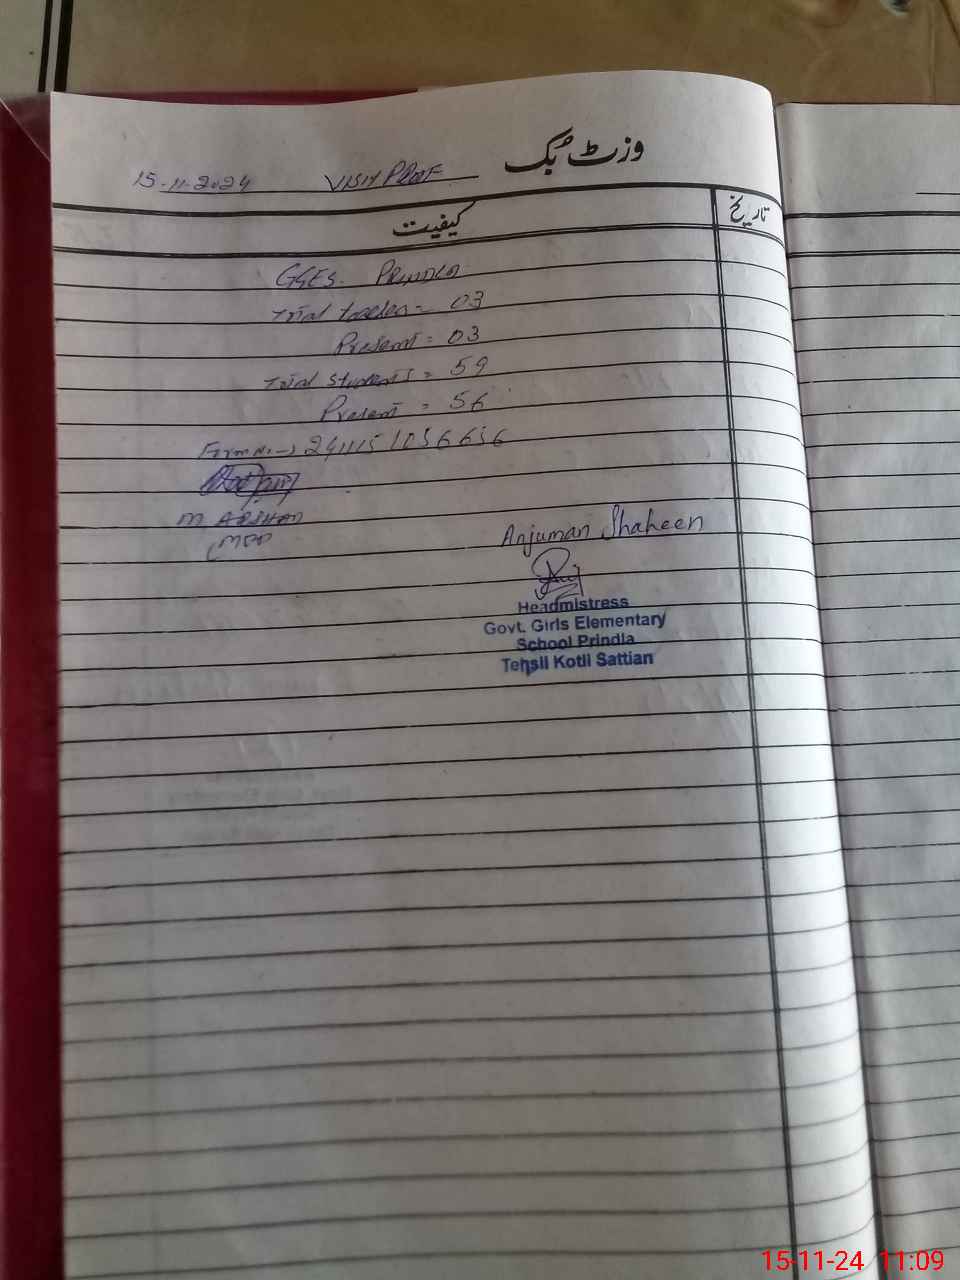 وزٹ بک
15-11-2024 VISIT PROF
کیفیت تاریخ
GGES. PRINDLA
Total teacher = 03
Present = 03
Total Students = 59
Present = 56
Form No → 241115
M ARSHAD
Anjuman Shaheen
Headmistress
Govt. Girls Elementary
School Prindla
Tehsil Kotli Sattian
15-11-24 11:09